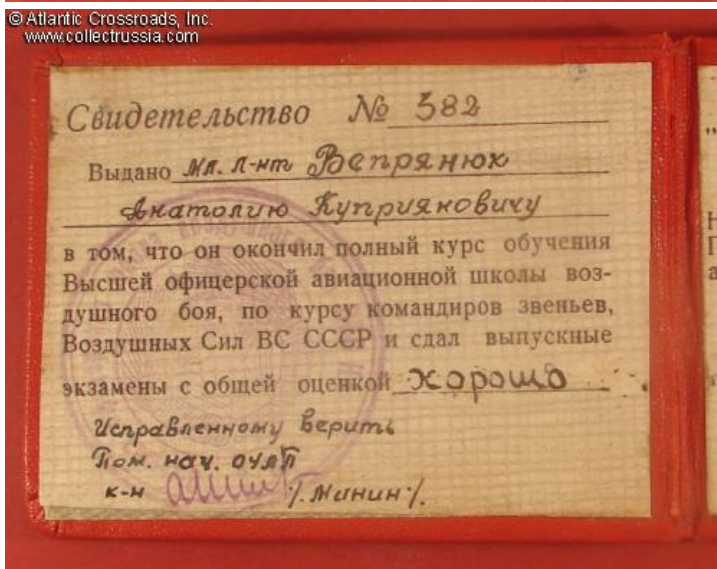 © Atlantic Crossroads, Inc.
www.collectrussia.com
Свидетельство № 382
Выдано мл. л-нт Вепрянюк
Анатолию Куприяновичу
в том, что он окончил полный курс обучения
Высшей офицерской авиационной школы воз-
душного боя, по курсу командиров звеньев,
Воздушных Сил ВС СССР и сдал выпускные
экзамены с общей оценкой хорошо
Исправленному верить
Пом. нач.
к-н /Минин/.